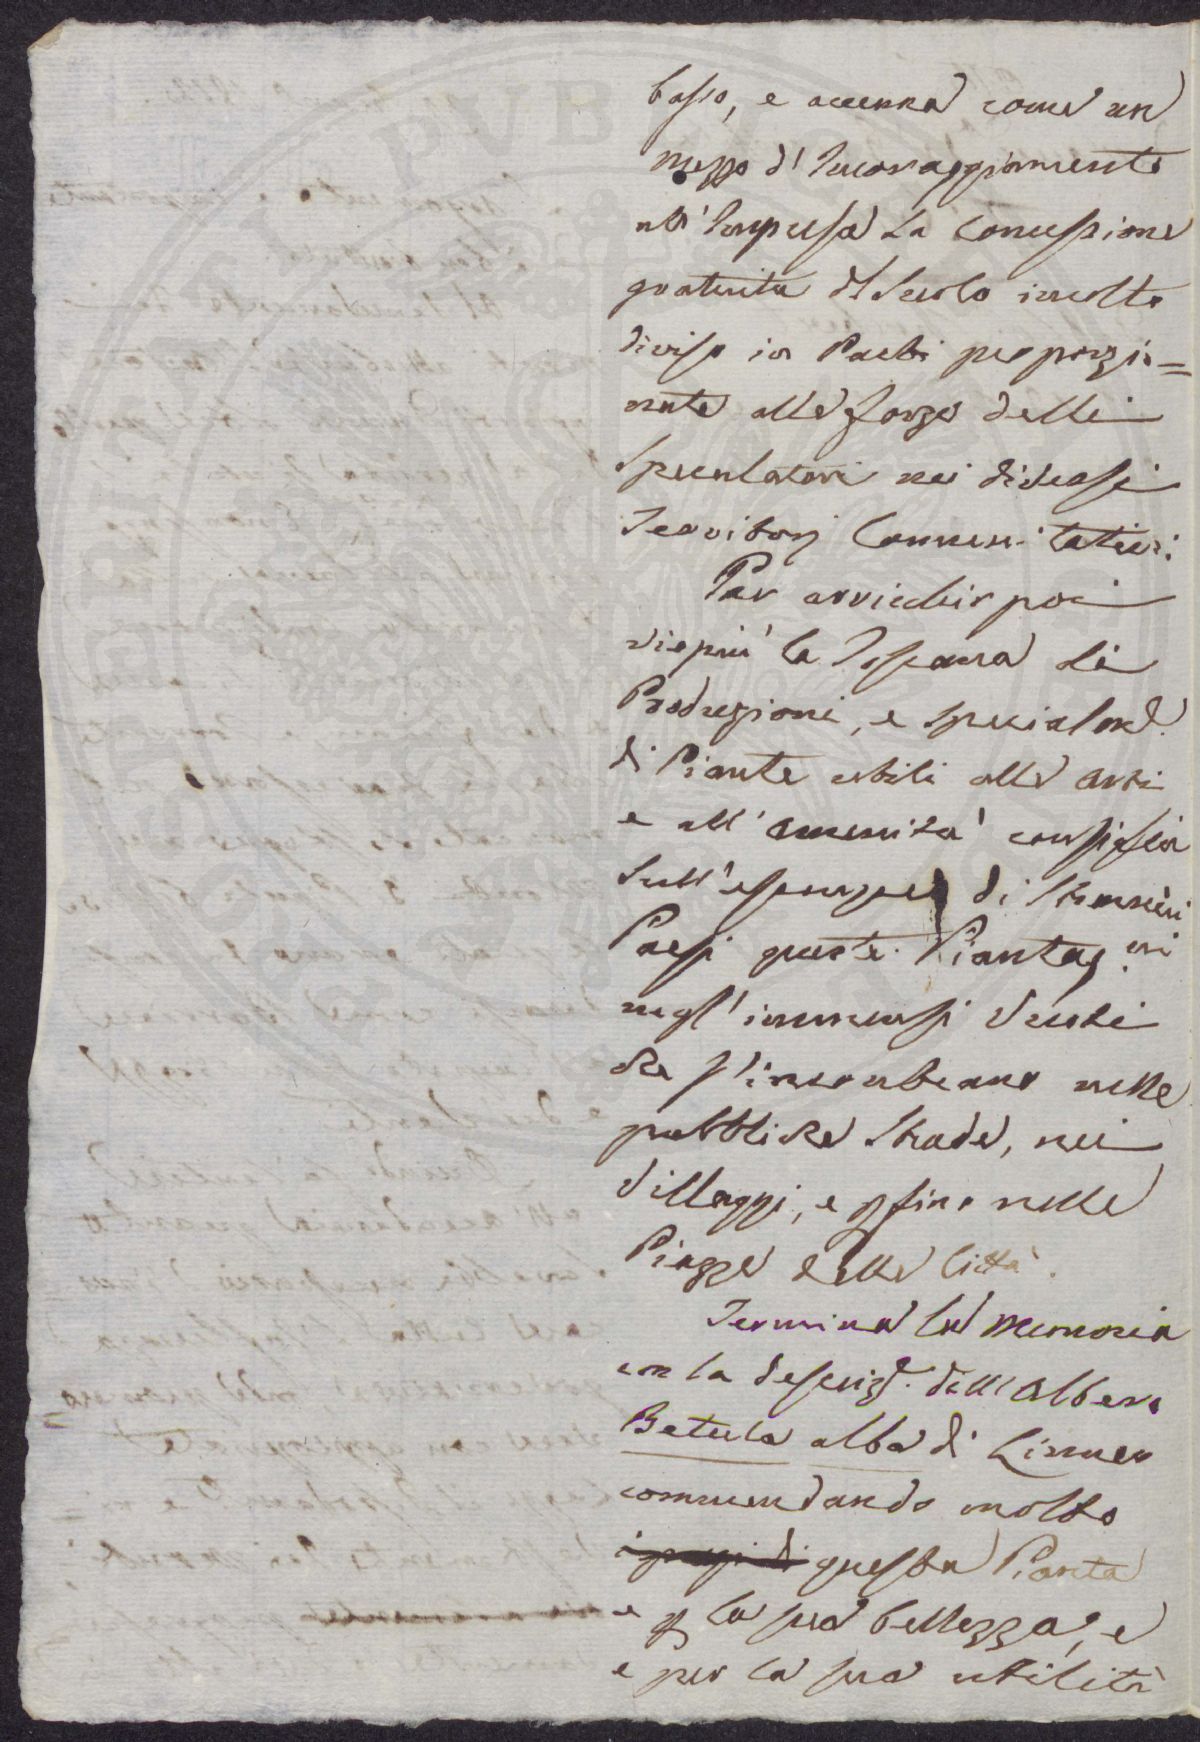 basso, e accenna come un
mezzo d'Incoraggiamento
all'Impresa la Concessione
gratuita del Suolo incolto
diviso in Parti proporzio=
nate alle forze delli
Speculatori nei diversi
Territorj Comunitativi.
Per arricchir poi
viepiù la Toscana di
Produzioni, e specialme.
di Piante utili alle arti
e all'amenità consiglia
sull'esempio di Stranieri
Paesi queste Piantag.ni
negl'immensi Vuoti
che s'incontrano nelle
pubbliche Strade, nei
Villaggi, e pfino nelle
Piazze delle Città.
Termina la Memoria
con la descrize. dell'Albero
Betula alba di Linneo
commendando molto
questa Pianta
e p la sua bellezza, e
e per la sua utilità